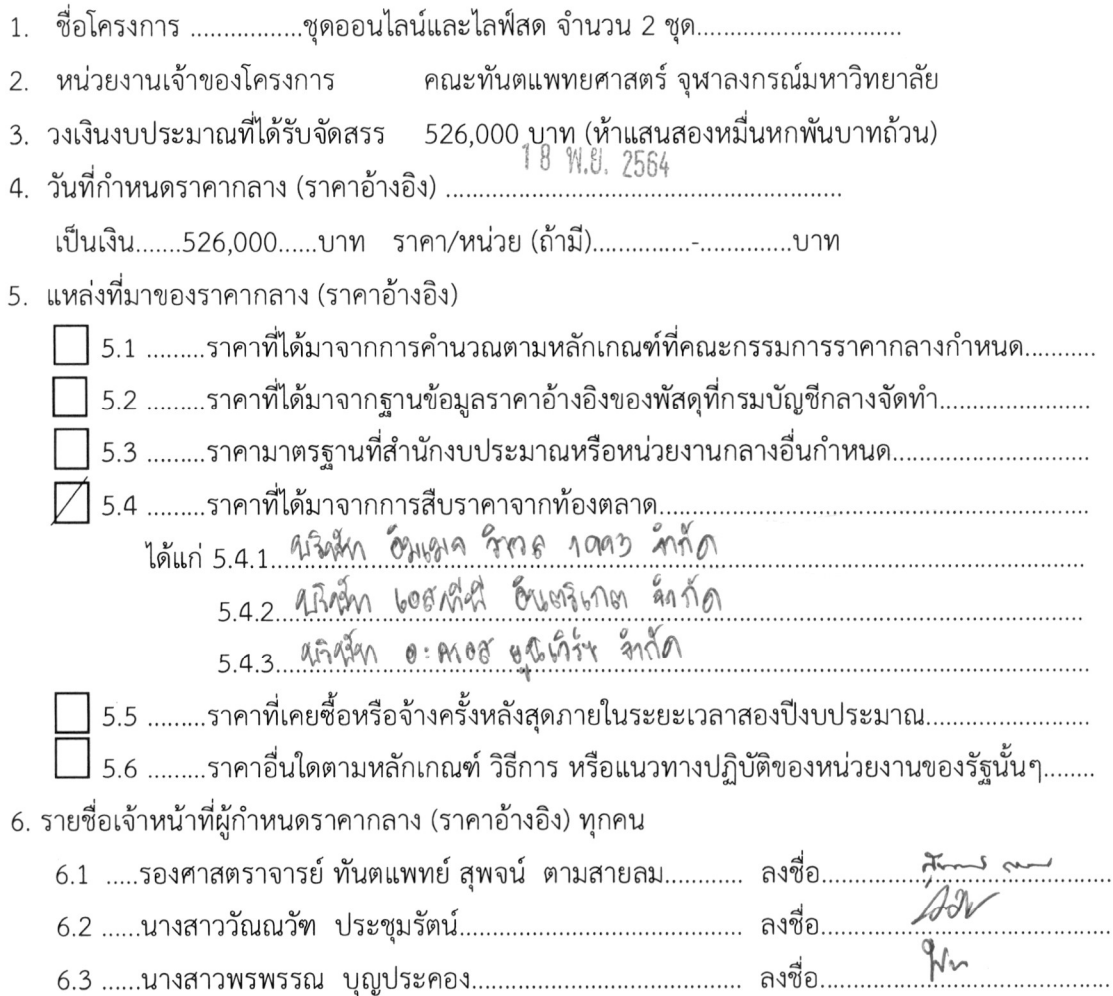 1. ชื่อโครงการ .................ชุดออนไลน์และไลฟ์สด จำนวน 2 ชุด...............................
2. หน่วยงานเจ้าของโครงการ คณะทันตแพทยศาสตร์ จุฬาลงกรณ์มหาวิทยาลัย
3. วงเงินงบประมาณที่ได้รับจัดสรร 526,000 บาท (ห้าแสนสองหมื่นหกพันบาทถ้วน)
18 พ.ย. 2564
4. วันที่กำหนดราคากลาง (ราคาอ้างอิง) ............................................................
เป็นเงิน.......526,000......บาท ราคา/หน่วย (ถ้ามี)...............-..............บาท
5. แหล่งที่มาของราคากลาง (ราคาอ้างอิง)
5.1 .........ราคาที่ได้มาจากการคำนวณตามหลักเกณฑ์ที่คณะกรรมการราคากลางกำหนด...........
5.2 .........ราคาที่ได้มาจากฐานข้อมูลราคาอ้างอิงของพัสดุที่กรมบัญชีกลางจัดทำ.......................
5.3 .........ราคามาตรฐานที่สำนักงบประมาณหรือหน่วยงานกลางอื่นกำหนด..............................
5.4 .........ราคาที่ได้มาจากการสืบราคาจากท้องตลาด.................................................................
ได้แก่ 5.4.1 บริษัท อิมเมจ วิชวล 1993 จำกัด
5.4.2 บริษัท เอสพีพี อินตริเกต จำกัด
5.4.3 บริษัท จำกัด
5.5 .........ราคาที่เคยซื้อหรือจ้างครั้งหลังสุดภายในระยะเวลาสองปีงบประมาณ.........................
5.6 .........ราคาอื่นใดตามหลักเกณฑ์ วิธีการ หรือแนวทางปฏิบัติของหน่วยงานของรัฐนั้นๆ........
6. รายชื่อเจ้าหน้าที่ผู้กำหนดราคากลาง (ราคาอ้างอิง) ทุกคน
6.1 .....รองศาสตราจารย์ ทันตแพทย์ สุพจน์ ตามสายลม............ ลงชื่อ
6.2 ......นางสาววัณณวัฑ ประชุมรัตน์........................................... ลงชื่อ
6.3 ......นางสาวพรพรรณ บุญประคอง......................................... ลงชื่อ